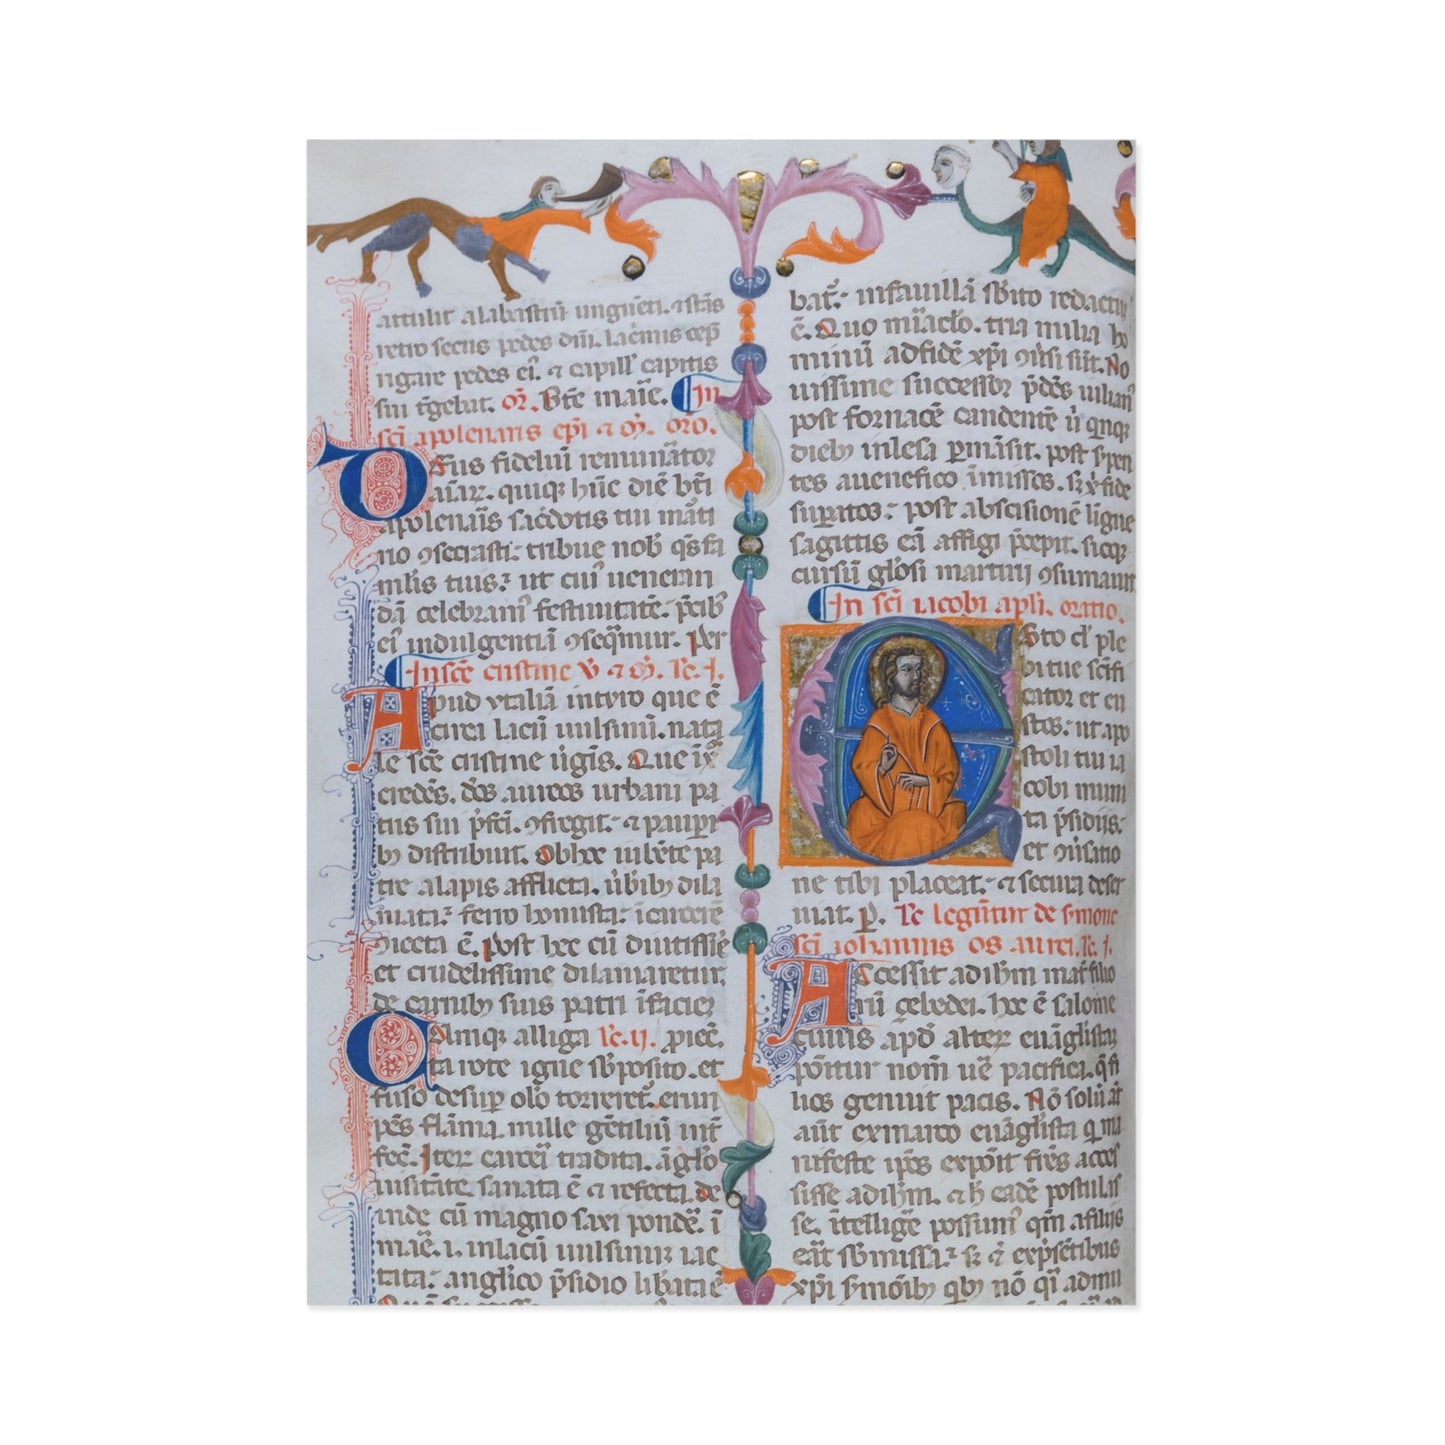 attulit alabastrū unguēti. ⁊ stās
retro secus pedes dn̄i. lac̄mis cep̄
rigare pedes ei᷒. ⁊ capill᷒ capitis
sui t̄gebat. or̄. Bt̄e maīe. In
sc̄i apolenaris ep̄i ⁊ m̄. oro᷒.
Deus fideliū remun̄ator
aīar. quiq; hūc diē bt̄i
apolenaīs sac̄dotis tui māti
rio ꝯsecrasti: tribue nob᷒ q̄s fa
mlis tuis: ut cui᷒ ueneran
dā celebram᷒ festiuitatē: p̄cib᷒
ei᷒ indulgentiā ꝯseq̄mur. Per
In sc̄e cristine v̄ ⁊ m̄. lc̄. I.
Apud ytaliā in tyro que ē
circa lacū uulsinū. nata
le sc̄e cristine ūgīs. Que ī xp̄o
credēs. d̄os aureos urbani pa
tris sui p̄fc̄i. ꝯfregit: ⁊ paup̄i
b᷒ distribuit. Ob hec iub̄ēte pa
tre alapis afflicta. ūb̄ib᷒ dila
niata: ferro honusta: ī carcerē
ꝯiecta ē. Post hec cū diutissīe
et crudelissime dilaniaretur
de carnib᷒ suis patri ī faciez
Cumq; alliga lc̄. ij. proiec̄.
ta rote igne sb̄posito. et
fuso desup̄ oleo torreret᷒. erūn
pēs flāma. mille gētiliū int̄
fec̄. Iter carcēi tradita. āglo
uisitāte sanata ē ⁊ refecta. de
inde cū magno saxi pondē. ī
maē. i. in lacū uulsinuz iac
tata: anglico p̄sidio libata ē
bat᷒: in fauillā sb̄ito redactus
ē. Quo mīaclo. tria milia ho
minū ad fidē xp̄i ꝯūsi sūt. No
uissime successor p̄dēs iulian᷒
post fornacē candentē ū quinq;
dieb᷒ inlesa p̄māsit. post s̄pen
tes a uenefico īmissos. s; xp̄i fide
sup̄atos: post abscisionē ligue
sagittis eā affigi p̄cepit. sicq;
cursū gl̄osi martirij ꝯsumauit
In sc̄i iacobi apl̄i. oratio.
Esto dn̄e ple
bi tue sc̄ifi
cator et cu
stos: ut apo
stoli tui ia
cobi muni
ta p̄sidijs.
et ꝯūsatio
ne tibi placeat: ⁊ secura deser
uiat. p. lc̄ leguntur de s̄mone
sc̄i iohannis os aurei. lc̄. I.
Accessit ad ih̄m mat̄ filio
rū zebedei. hec ē salome
cuius ap̄d alter̄ euāglistaz
pōitur nom̄ ue pacifica. q̄ fi
lios genuit pacis. Nō solū at̄
aūt ex marco euāglista q ma
nifeste ip̄os expōit fr̄es acces
sisse ad ih̄m. ⁊ h eadē postulas
se. ītellige possum᷒ qm̄ a filijs
eāt sb̄missa: s; ⁊ exp̄sētibus
xp̄i s̄mōib᷒ qb᷒ nō q̄ admi